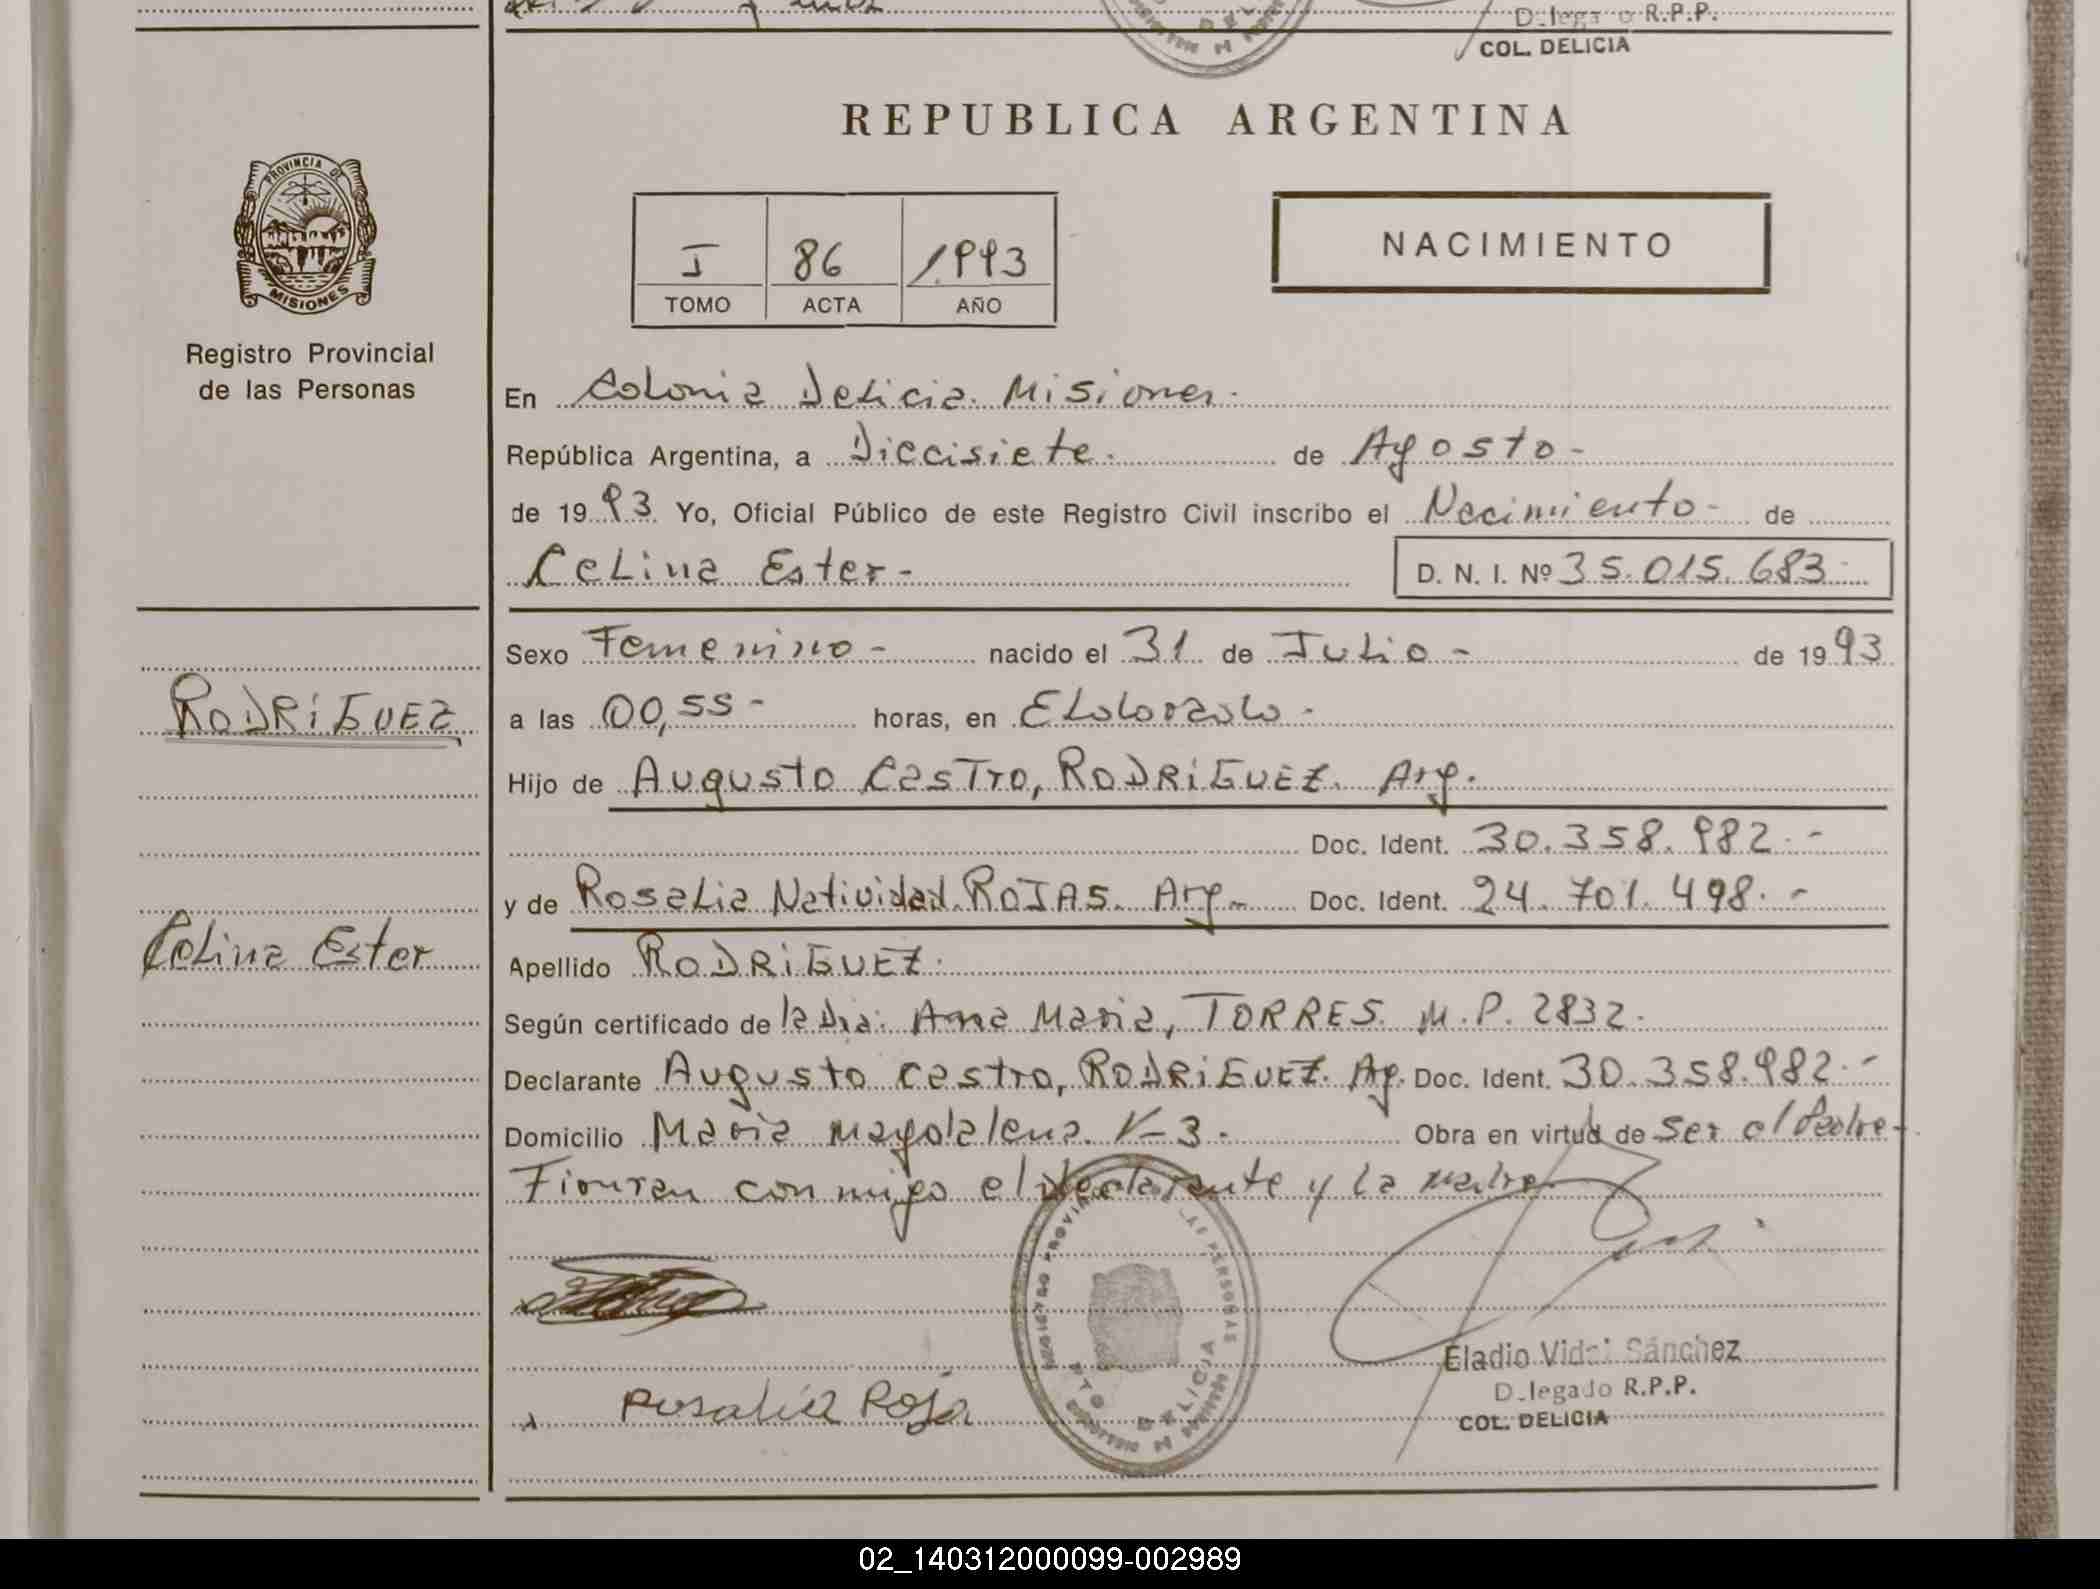 COL. DELICIA
REPUBLICA ARGENTINA
PROVINCIA DE
MISIONES
Registro Provincial
de las Personas
I 86 1.993
TOMO ACTA AÑO
NACIMIENTO
En Colonia Delicia. Misiones.
República Argentina, a Diecisiete. de Agosto-
de 1993. Yo, Oficial Público de este Registro Civil inscribo el Nacimiento- de
Celina Ester-
D. N. I. Nº 35.015.683-
Sexo Femenino- nacido el 31 de Julio- de 1993
a las 00,55- horas, en Eldorado.
Hijo de Augusto Castro, RODRIGUEZ. Arg.
Doc. Ident. 30.358.982.-
y de Rosalia Natividad ROJAS. Arg. Doc. Ident. 24.701.498.-
Apellido RODRIGUEZ.
Según certificado de la Dra. Ana Maria, TORRES. M.P. 2832.
Declarante Augusto Castro, RODRIGUEZ. Ag. Doc. Ident. 30.358.982.-
Domicilio Maria Magdalena K-3. Obra en virtud de ser el Padre-
Firman conmigo el declarante y la madre
RODRIGUEZ
Celina Ester
Rosalia Roja
DELICIA
Eladio Vidal Sánchez
Delegado R.P.P.
COL. DELICIA
02_140312000099-002989